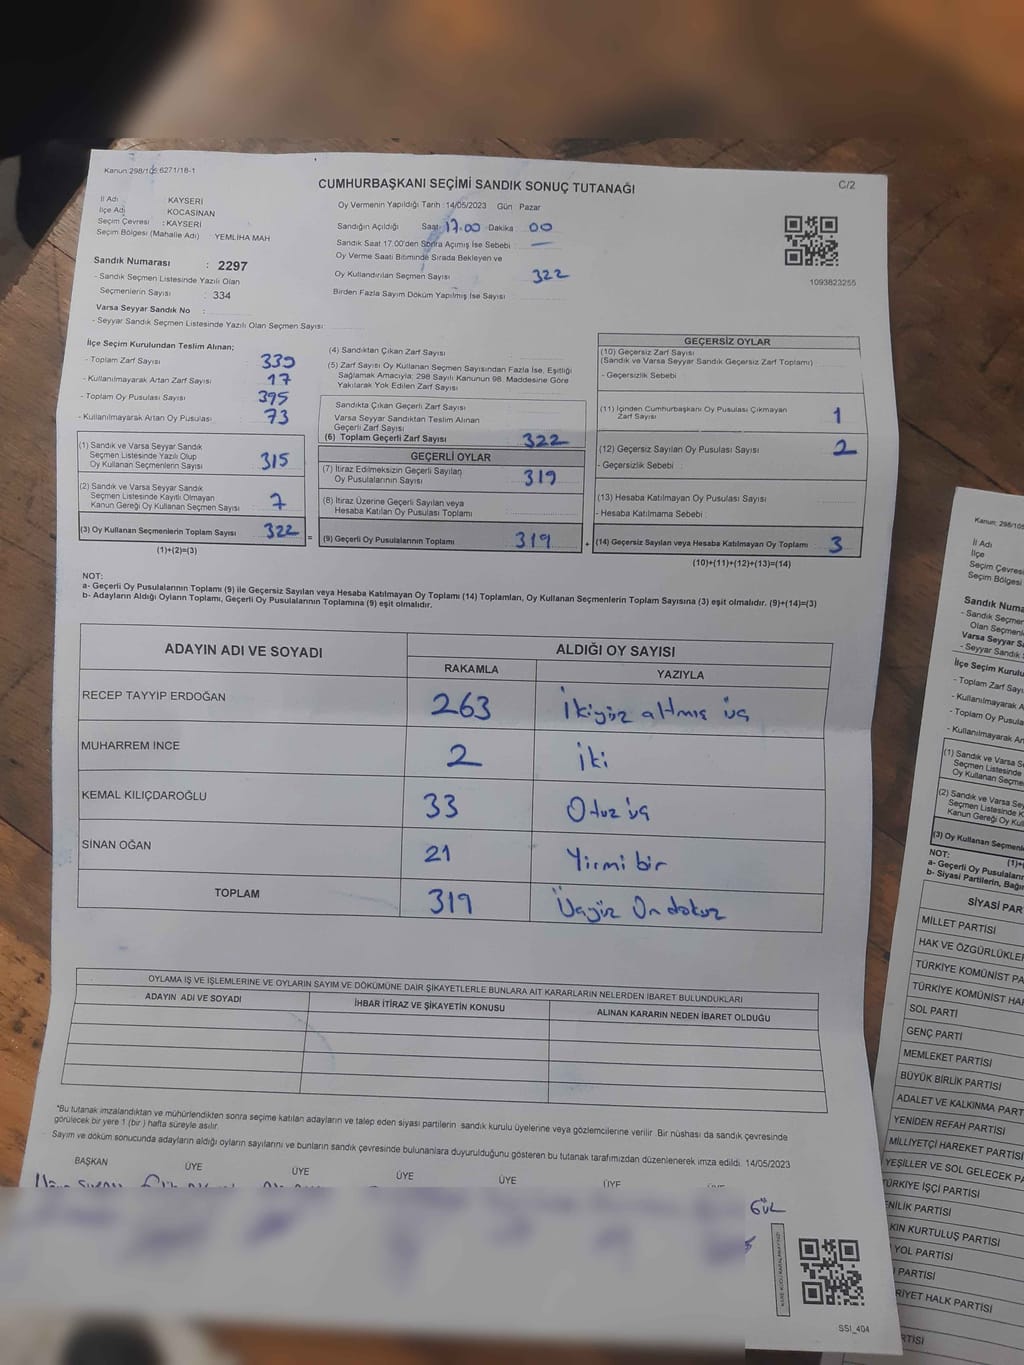 Kanun 298/105 6271/18-1
CUMHURBAŞKANI SEÇİMİ SANDIK SONUÇ TUTANAĞI
C/2
İl Adı : KAYSERİ
İlçe Adı : KOCASİNAN
Seçim Çevresi : KAYSERİ
Seçim Bölgesi (Mahalle Adı) : YEMLİHA MAH
Sandık Numarası : 2297
- Sandık Seçmen Listesinde Yazılı Olan
Seçmenlerin Sayısı : 334
Varsa Seyyar Sandık No :
- Seyyar Sandık Seçmen Listesinde Yazılı Olan Seçmen Sayısı
Oy Vermenin Yapıldığı Tarih : 14/05/2023 Gün Pazar
Sandığın Açıldığı Saat 17.00 Dakika 00
Sandık Saat 17.00'den Sonra Açımış İse Sebebi : —
Oy Verme Saati Bitiminde Sırada Bekleyen ve
Oy Kullandırılan Seçmen Sayısı 322
Birden Fazla Sayım Döküm Yapılmış İse Sayısı
1093823255
İlçe Seçim Kurulundan Teslim Alınan;
- Toplam Zarf Sayısı 339
- Kullanılmayarak Artan Zarf Sayısı 17
- Toplam Oy Pusulası Sayısı 395
- Kullanılmayarak Artan Oy Pusulası 73
(1) Sandık ve Varsa Seyyar Sandık
Seçmen Listesinde Yazılı Olup
Oy Kullanan Seçmenlerin Sayısı 315
(2) Sandık ve Varsa Seyyar Sandık
Seçmen Listesinde Kayıtlı Olmayan
Kanun Gereği Oy Kullanan Seçmen Sayısı 7
(3) Oy Kullanan Seçmenlerin Toplam Sayısı 322 =
(1)+(2)=(3)
(4) Sandıktan Çıkan Zarf Sayısı
(5) Zarf Sayısı Oy Kullanan Seçmen Sayısından Fazla İse, Eşitliği
Sağlamak Amacıyla; 298 Sayılı Kanunun 98. Maddesine Göre
Yakılarak Yok Edilen Zarf Sayısı
Sandıkta Çıkan Geçerli Zarf Sayısı
Varsa Seyyar Sandıktan Teslim Alınan
Geçerli Zarf Sayısı
(6) Toplam Geçerli Zarf Sayısı 322
GEÇERLİ OYLAR
(7) İtiraz Edilmeksizin Geçerli Sayılan
Oy Pusulalarının Sayısı 319
(8) İtiraz Üzerine Geçerli Sayılan veya
Hesaba Katılan Oy Pusulası Toplamı
(9) Geçerli Oy Pusulalarının Toplamı 319 +
GEÇERSİZ OYLAR
(10) Geçersiz Zarf Sayısı
(Sandık ve Varsa Seyyar Sandık Geçersiz Zarf Toplamı)
- Geçersizlik Sebebi
(11) İçinden Cumhurbaşkanı Oy Pusulası Çıkmayan
Zarf Sayısı 1
(12) Geçersiz Sayılan Oy Pusulası Sayısı 2
- Geçersizlik Sebebi :
(13) Hesaba Katılmayan Oy Pusulası Sayısı
- Hesaba Katılmama Sebebi :
(14) Geçersiz Sayılan veya Hesaba Katılmayan Oy Toplamı 3
(10)+(11)+(12)+(13)=(14)
NOT:
a- Geçerli Oy Pusulalarının Toplamı (9) ile Geçersiz Sayılan veya Hesaba Katılmayan Oy Toplamı (14) Toplamları, Oy Kullanan Seçmenlerin Toplam Sayısına (3) eşit olmalıdır. (9)+(14)=(3)
b- Adayların Aldığı Oyların Toplamı, Geçerli Oy Pusulalarının Toplamına (9) eşit olmalıdır.
ADAYIN ADI VE SOYADI
ALDIĞI OY SAYISI
RAKAMLA YAZIYLA
RECEP TAYYİP ERDOĞAN 263 İkiyüz altmış üç
MUHARREM İNCE 2 İki
KEMAL KILIÇDAROĞLU 33 Otuz üç
SİNAN OĞAN 21 Yirmi bir
TOPLAM 319 Üçyüz On dokuz
OYLAMA İŞ VE İŞLEMLERİNE VE OYLARIN SAYIM VE DÖKÜMÜNE DAİR ŞİKAYETLERLE BUNLARA AİT KARARLARIN NELERDEN İBARET BULUNDUKLARI
ADAYIN ADI VE SOYADI İHBAR İTİRAZ VE ŞİKAYETİN KONUSU ALINAN KARARIN NEDEN İBARET OLDUĞU
*Bu tutanak imzalandıktan ve mühürlendikten sonra seçime katılan adayların ve talep eden siyasi partilerin sandık kurulu üyelerine veya gözlemcilerine verilir. Bir nüshası da sandık çevresinde
görülecek bir yere 1 (bir) hafta süreyle asılır.
Sayım ve döküm sonucunda adayların aldığı oyların sayılarını ve bunların sandık çevresinde bulunanlara duyurulduğunu gösteren bu tutanak tarafımızdan düzenlenerek imza edildi. 14/05/2023
BAŞKAN ÜYE ÜYE ÜYE ÜYE ÜYE
GÜL
SSI_404
Kanun: 298/105
İl Adı
İlçe
Seçim Çevresi
Seçim Bölgesi
Sandık Numa
- Sandık Seçmen
Olan Seçmenl
Varsa Seyyar S
- Seyyar Sandık
İlçe Seçim Kurulu
- Toplam Zarf Sayı
- Kullanılmayarak A
- Toplam Oy Pusula
- Kullanılmayarak Ar
(1) Sandık ve Varsa S
Seçmen Listesinde
Oy Kullanan Seçme
(2) Sandık ve Varsa Sey
Seçmen Listesinde K
Kanun Gereği Oy Kulla
(3) Oy Kullanan Seçmenle
NOT:
a- Geçerli Oy Pusulaların
b- Siyasi Partilerin, Bağı
SİYASİ PAR
MİLLET PARTİSİ
HAK VE ÖZGÜRLÜKLE
TÜRKİYE KOMÜNİST PA
TÜRKİYE KOMÜNİST HA
SOL PARTİ
GENÇ PARTİ
MEMLEKET PARTİSİ
BÜYÜK BİRLİK PARTİSİ
ADALET VE KALKINMA PART
YENİDEN REFAH PARTİSİ
MİLLİYETÇİ HAREKET PARTİSİ
YEŞİLLER VE SOL GELECEK PA
TÜRKİYE İŞÇİ PARTİSİ
ENİLİK PARTİSİ
KIN KURTULUŞ PARTİSİ
YOL PARTİSİ
PARTİSİ
RİYET HALK PARTİSİ
RTİSİ